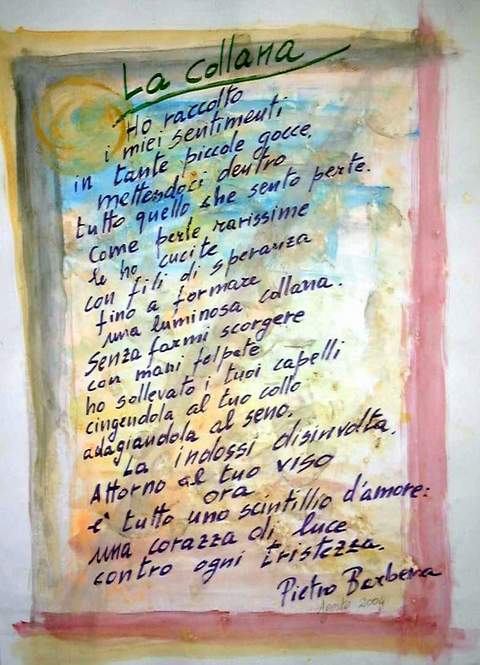 La collana
Ho raccolto
i miei sentimenti
in tante piccole gocce,
mettendoci dentro
tutto quello che sento perte.
Come perle rarissime
le ho cucite
con fili di speranza
fino a formare
una luminosa collana.
Senza farmi scorgere
con mani felpate
ho sollevato i tuoi capelli
cingendola al tuo collo
adagiandola al seno.
La indossi disinvolta.
Attorno al tuo viso
ora
e' tutto uno scintillio d'amore:
una corazza di luce
contro ogni tristezza.
Pietro Barbera
Agosto 2004